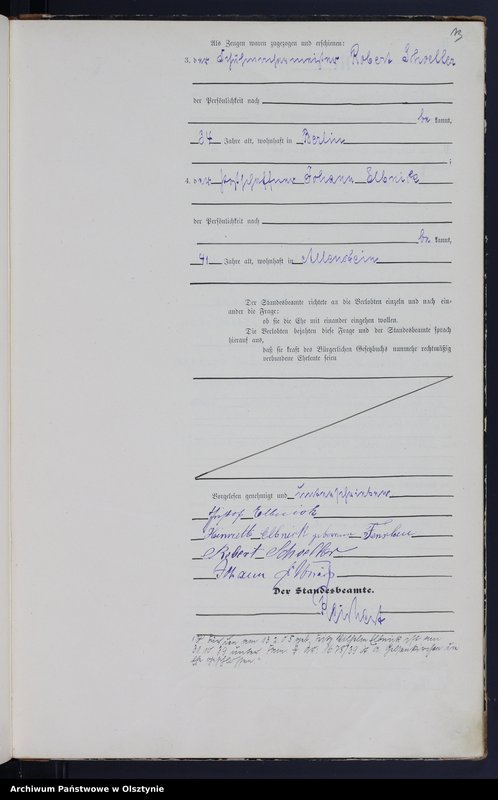 Als Zeugen waren zugezogen und erschienen:
3. der Schuhmachermeister Robert Schoeller
der Persönlichkeit nach
be kannt,
34 Jahre alt, wohnhaft in Berlin
;
4. der Postschaffner Johann Elbnick
der Persönlichkeit nach
be kannt,
41 Jahre alt, wohnhaft in Allenstein
Der Standesbeamte richtete an die Verlobten einzeln und nach ein-
ander die Frage:
ob sie die Ehe mit einander eingehen wollen.
Die Verlobten bejahten diese Frage und der Standesbeamte sprach
hierauf aus,
daß sie kraft des Bürgerlichen Gesetzbuchs nunmehr rechtmäßig
verbundene Eheleute seien
Vorgelesen, genehmigt und unterschrieben
Elbnick
Henriette Elbnick geborene
Robert Schoeller
Johann Elbnick
Der Standesbeamte.
Fritz Wilhelm Elbnick ist am
unter dem
Archiwum Państwowe w Olsztynie